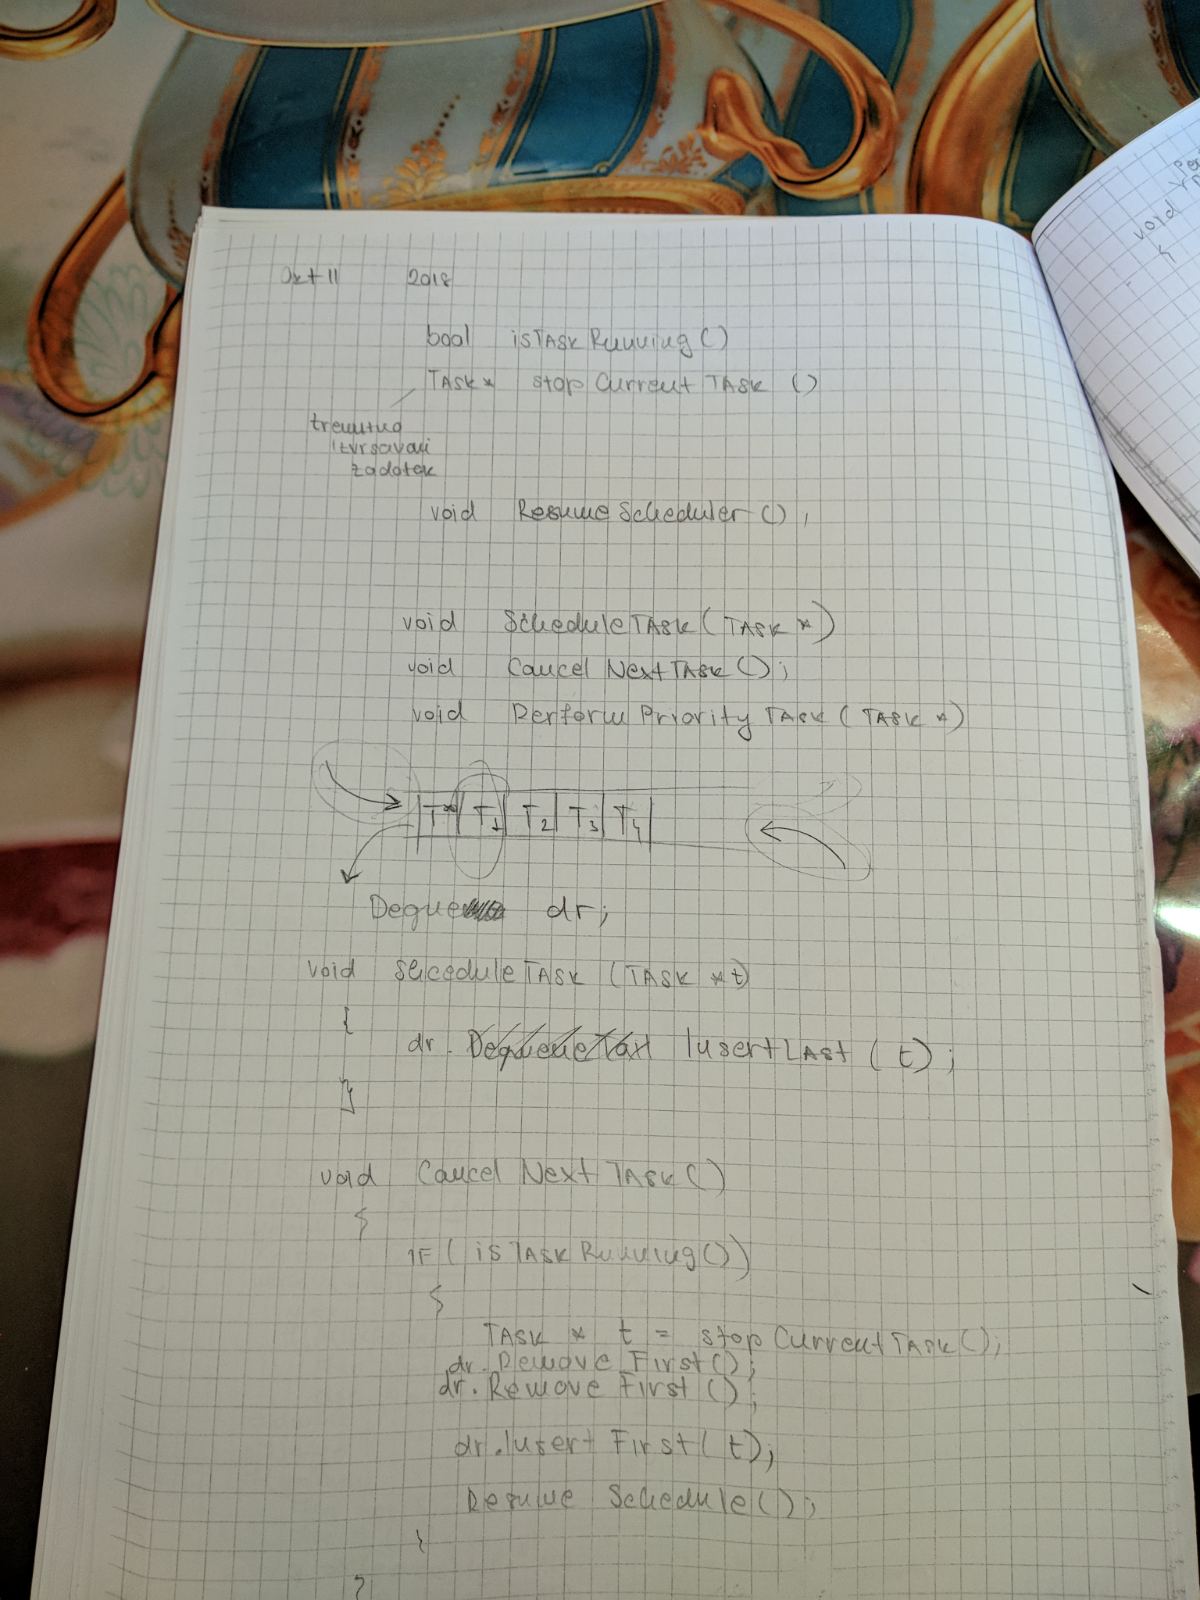 Okt II 2018
bool isTASKRunning()
TASK* stopCurrentTASK ()
trenutno
izvrsavani
zadatak
void ResumeScheduler();
void ScheduleTASK(TASK *)
void CancelNextTASK();
void PerformPriorityTASK(TASK *)
T* T1 T2 T3 T4
Deque dr;
void SceduleTASK (TASK *t)
{
dr. DequeueTail InsertLAst (t);
}
void Cancel Next TASK()
{
IF( isTASKRunning())
{
TASK * t = stopCurrentTASK();
dr.Remove First();
dr.Remove First();
dr.Insert First(t);
Resume Schedule();
}
}
void
{